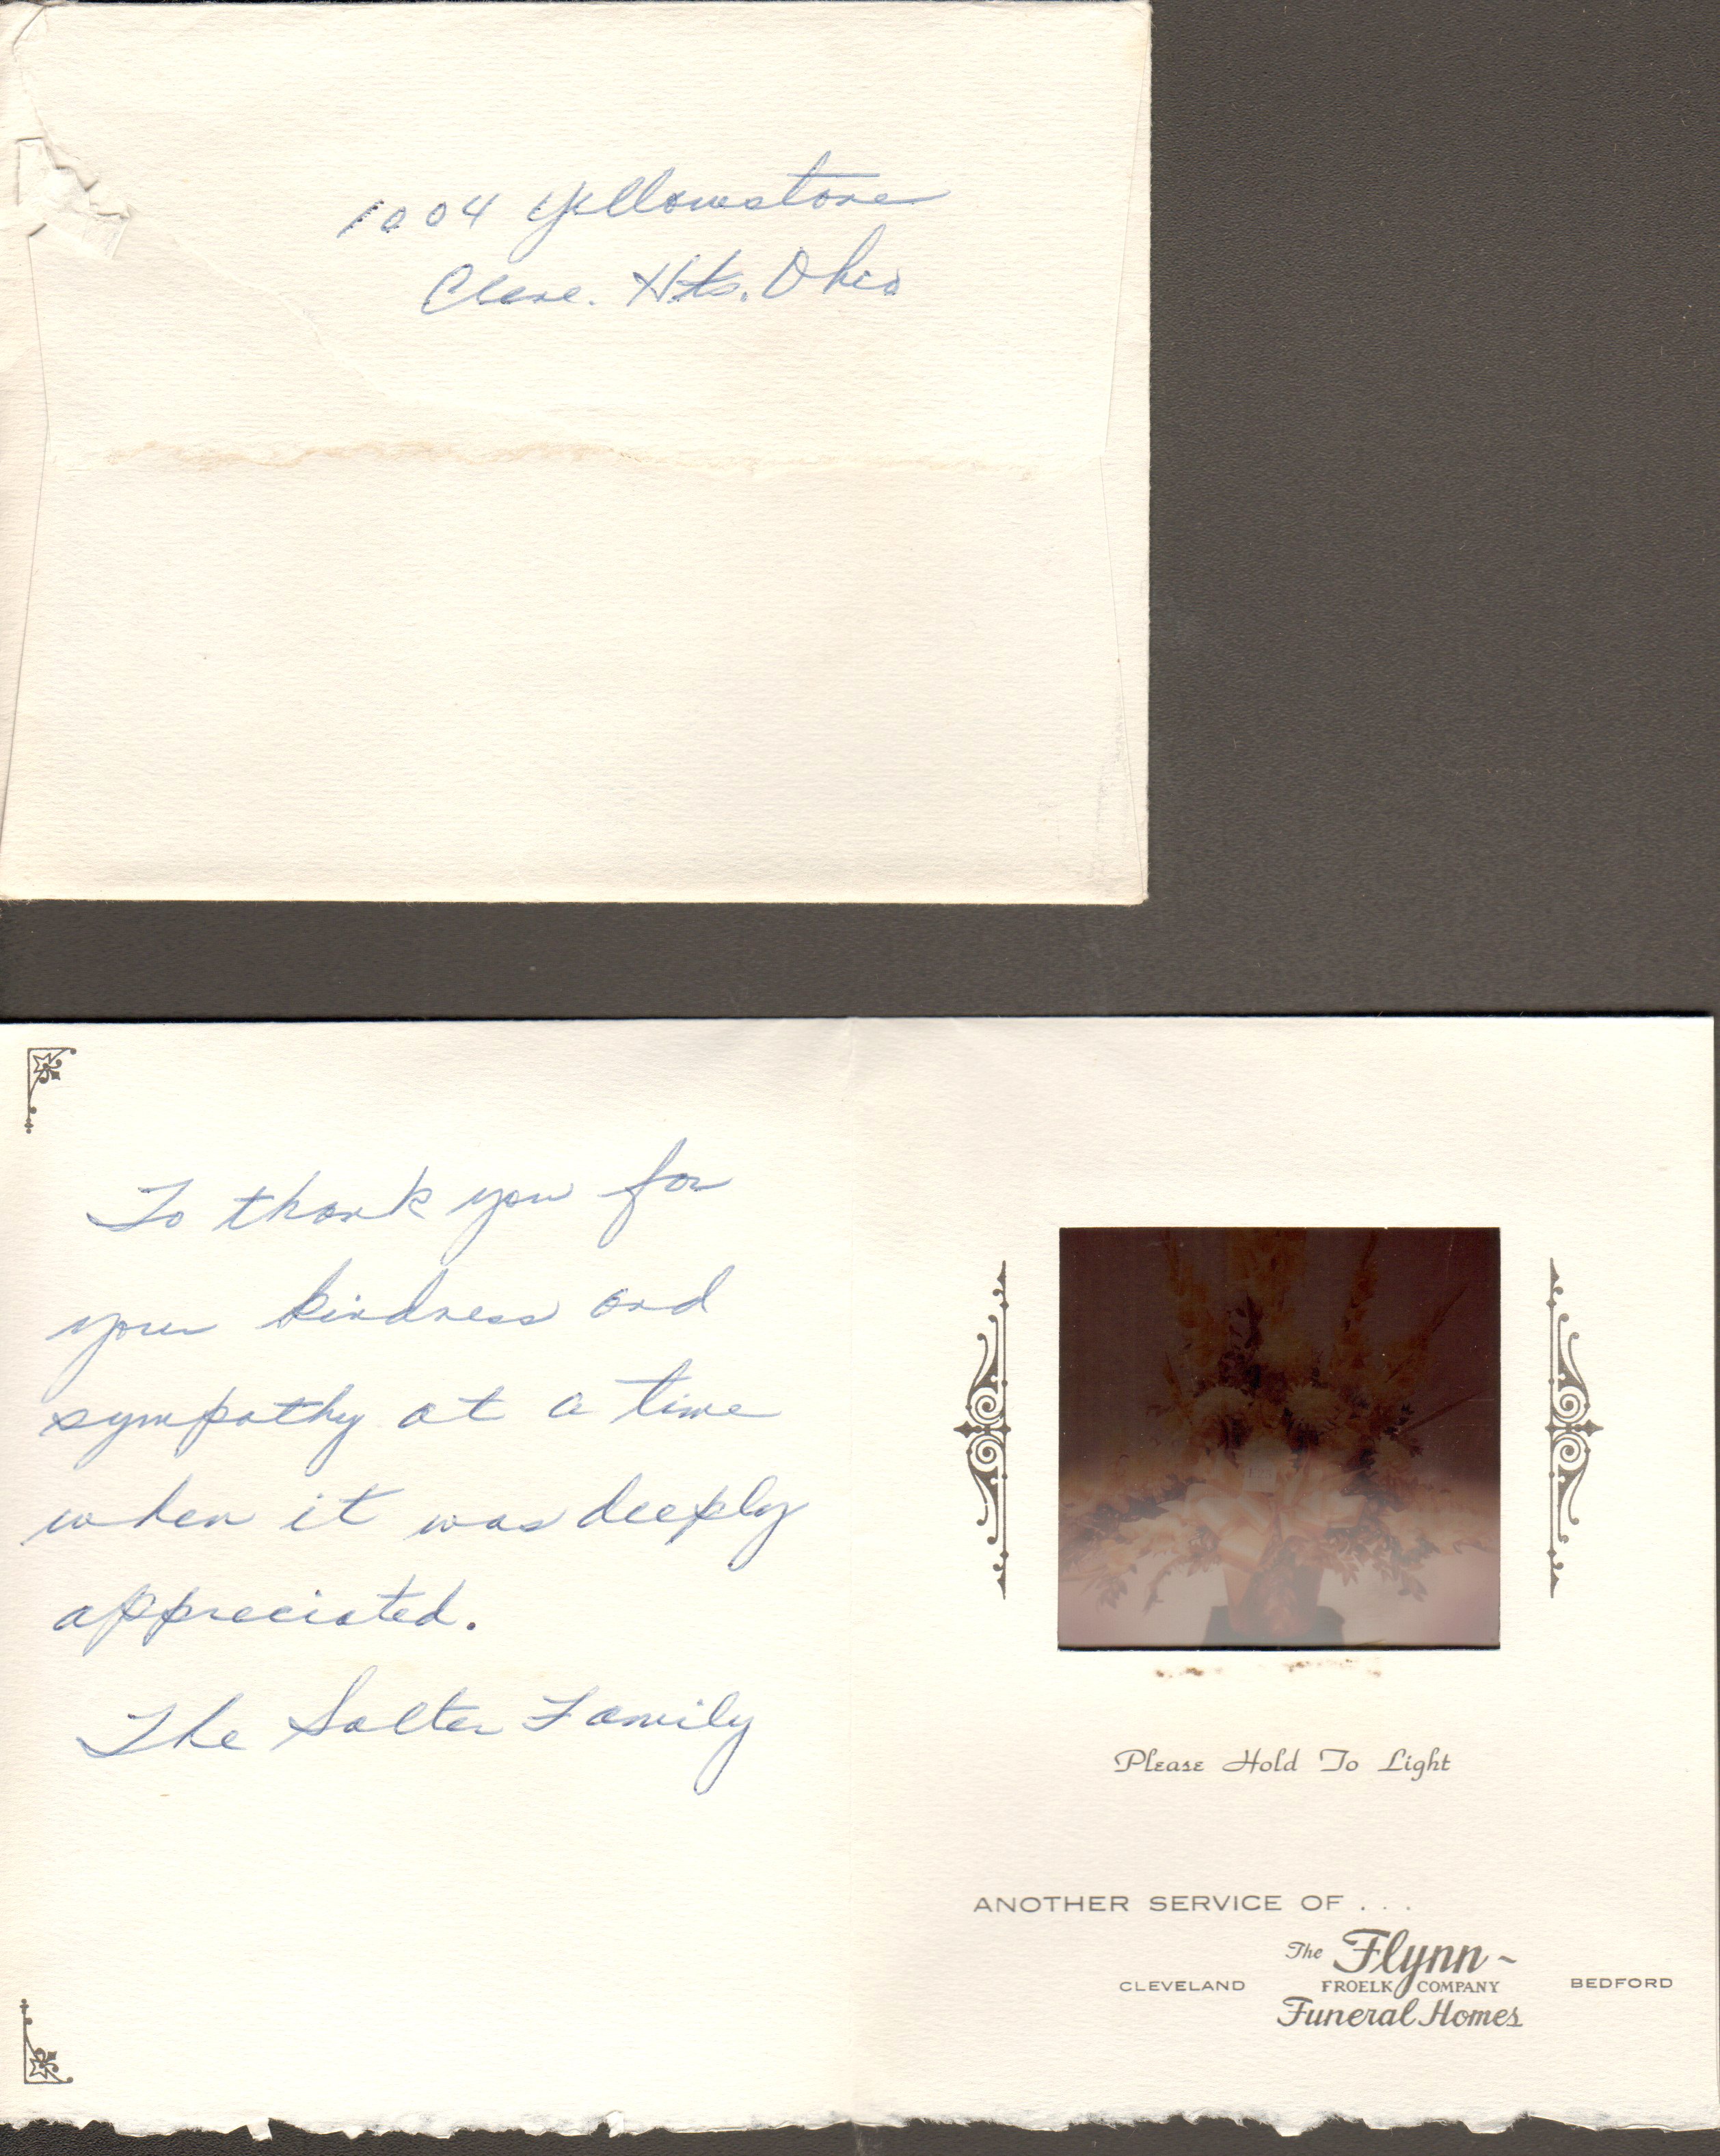 1004 Yellowstone
Cleve. Hts. Ohio
To thank you for
your kindness and
sympathy at a time
when it was deeply
appreciated.
The Salter Family
Please Hold To Light
ANOTHER SERVICE OF . . .
The Flynn ~
CLEVELAND FROELK COMPANY BEDFORD
Funeral Homes